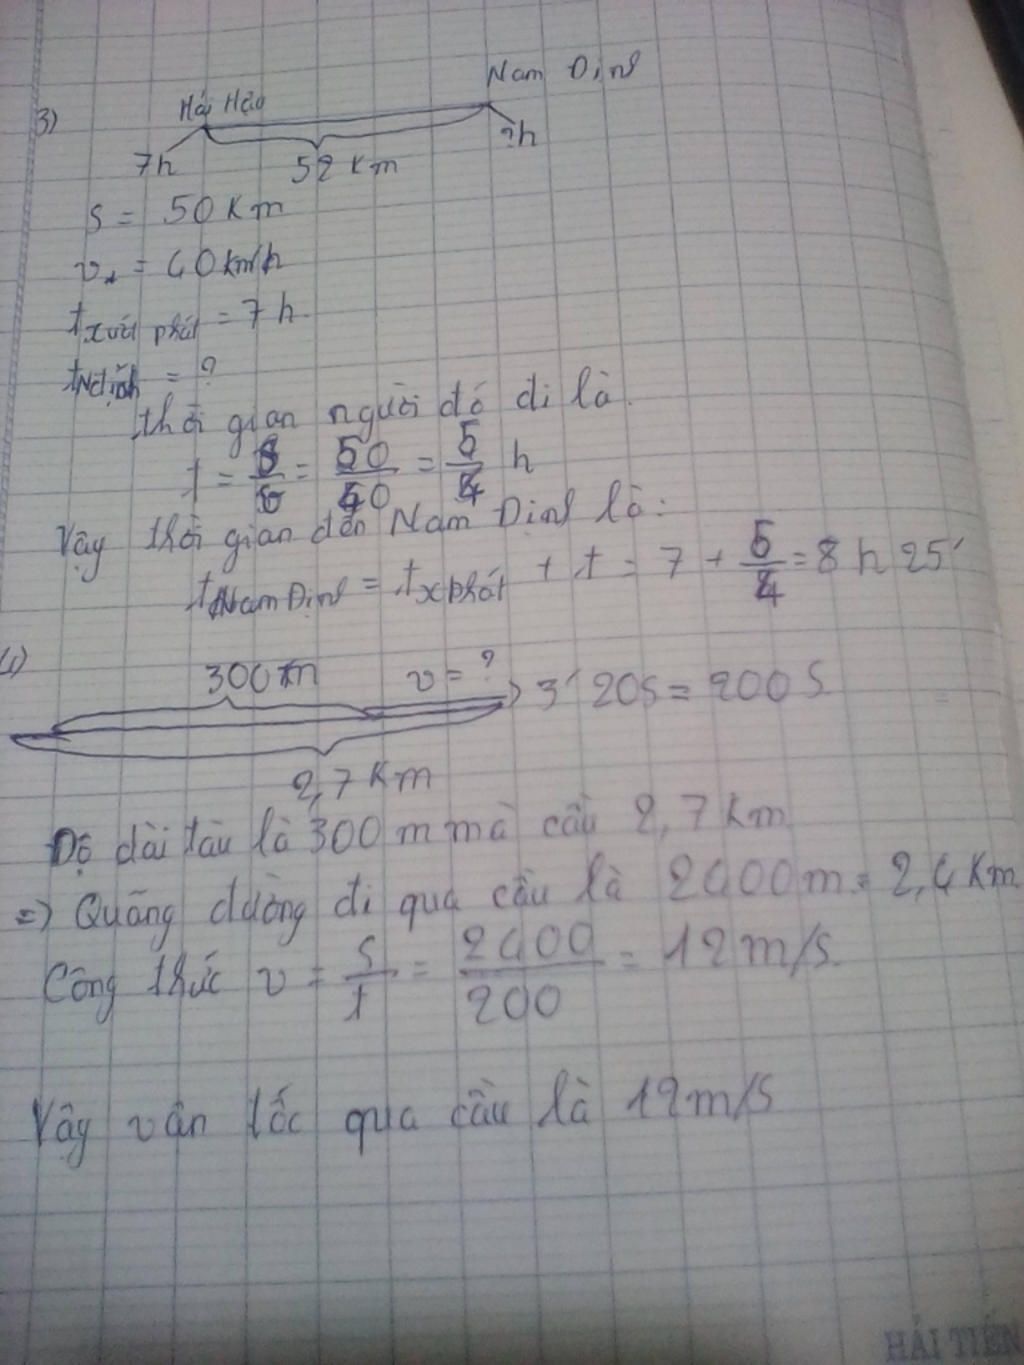 Nam Định
Hải Hậu
3)
7h
52 Km
?h
s = 50 Km
v = 40 km/h
t xuất phát = 7 h.
t NĐịnh = ?
thời gian người đó đi là.
t = = 50/40 = 5/4 h
Vậy thời gian đến Nam Định là:
t Nam Định = t xphát + t = 7 + 5/4 = 8 h 25'
4)
300m v = ? 3' 20s = 200 s
2,7 Km
Độ dài tàu là 300 m mà cầu 2,7 Km
=) Quãng đường đi qua cầu là 2400m = 2,4 Km
Công thức v = s/t = 2400/200 = 12 m/s.
Vậy vận tốc qua cầu là 12 m/s
HẢI TIẾN